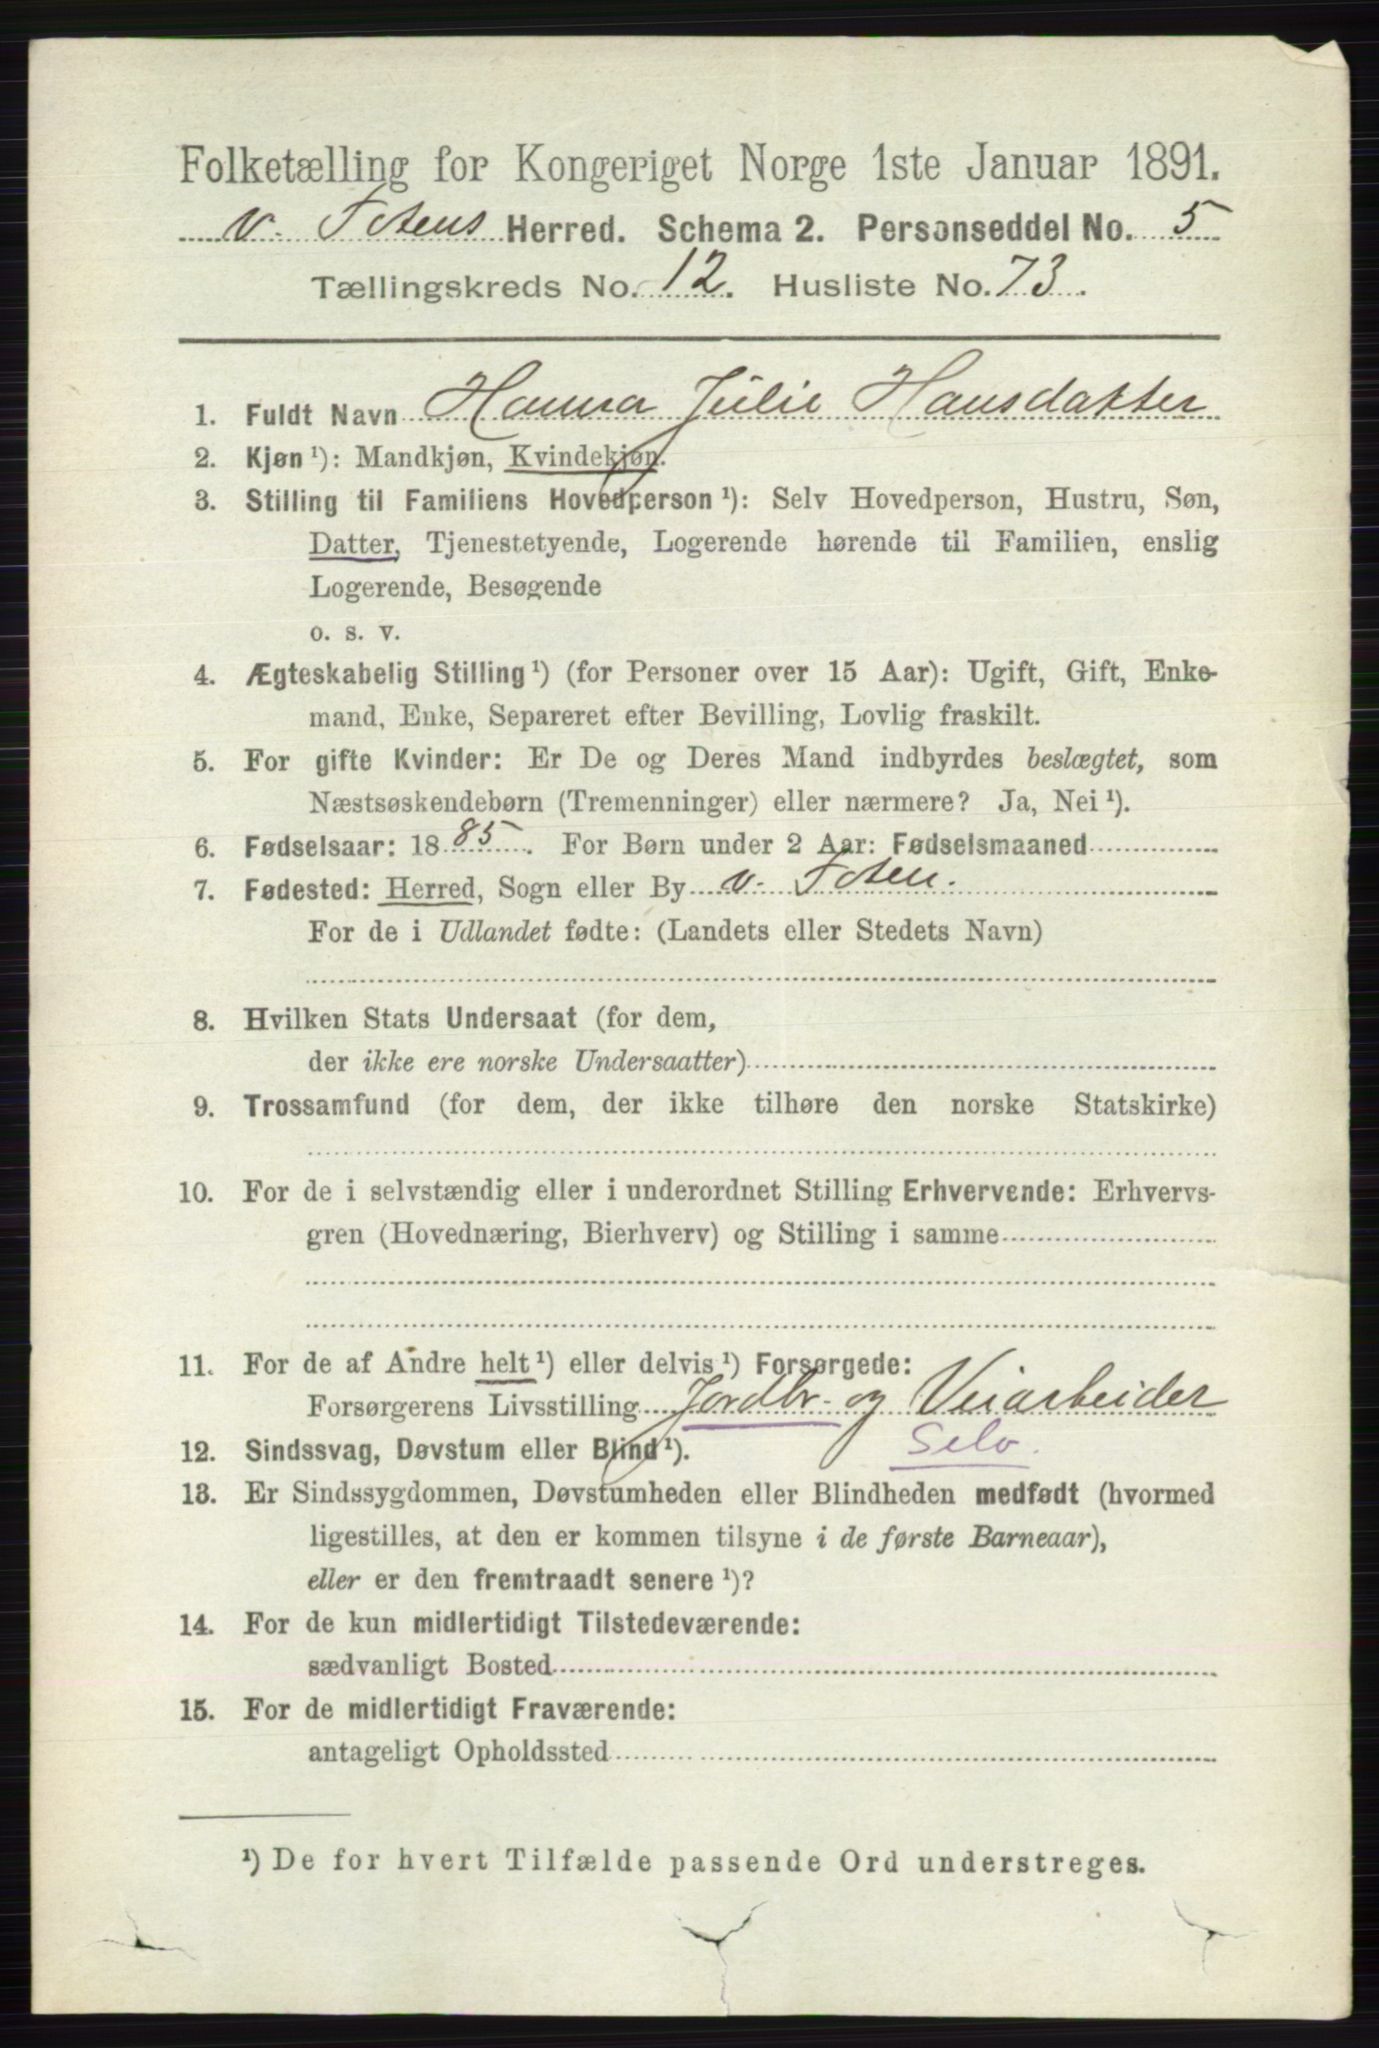 Folketælling for Kongeriget Norge 1ste Januar 1891.
V. Totens Herred. Schema 2. Personseddel No. 5
Tællingskreds No. 12. Husliste No. 73.
1. Fuldt Navn Hanna Julie Hansdatter
2. Kjøn ¹): Mandkjøn, Kvindekjøn.
3. Stilling til Familiens Hovedperson ¹): Selv Hovedperson, Hustru, Søn,
Datter, Tjenestetyende, Logerende hørende til Familien, enslig
Logerende, Besøgende
o. s. v.
4. Ægteskabelig Stilling ¹) (for Personer over 15 Aar): Ugift, Gift, Enke-
mand, Enke, Separeret efter Bevilling, Lovlig fraskilt.
5. For gifte Kvinder: Er De og Deres Mand indbyrdes beslægtet, som
Næstsøskendebørn (Tremenninger) eller nærmere? Ja, Nei ¹).
6. Fødselsaar: 1885. For Børn under 2 Aar: Fødselsmaaned
7. Fødested: Herred, Sogn eller By V. Toten.
For de i Udlandet fødte: (Landets eller Stedets Navn)
8. Hvilken Stats Undersaat (for dem,
der ikke ere norske Undersaatter)
9. Trossamfund (for dem, der ikke tilhøre den norske Statskirke)
10. For de i selvstændig eller i underordnet Stilling Erhvervende: Erhvervs-
gren (Hovednæring, Bierhverv) og Stilling i samme
11. For de af Andre helt ¹) eller delvis ¹) Forsørgede:
Forsørgerens Livsstilling Jordbr. og Veiarbeider
Selv.
12. Sindssvag, Døvstum eller Blind ¹).
13. Er Sindssygdommen, Døvstumheden eller Blindheden medfødt (hvormed
ligestilles, at den er kommen tilsyne i de første Barneaar),
eller er den fremtraadt senere ¹)?
14. For de kun midlertidigt Tilstedeværende:
sædvanligt Bosted
15. For de midlertidigt Fraværende:
antageligt Opholdssted
¹) De for hvert Tilfælde passende Ord understreges.